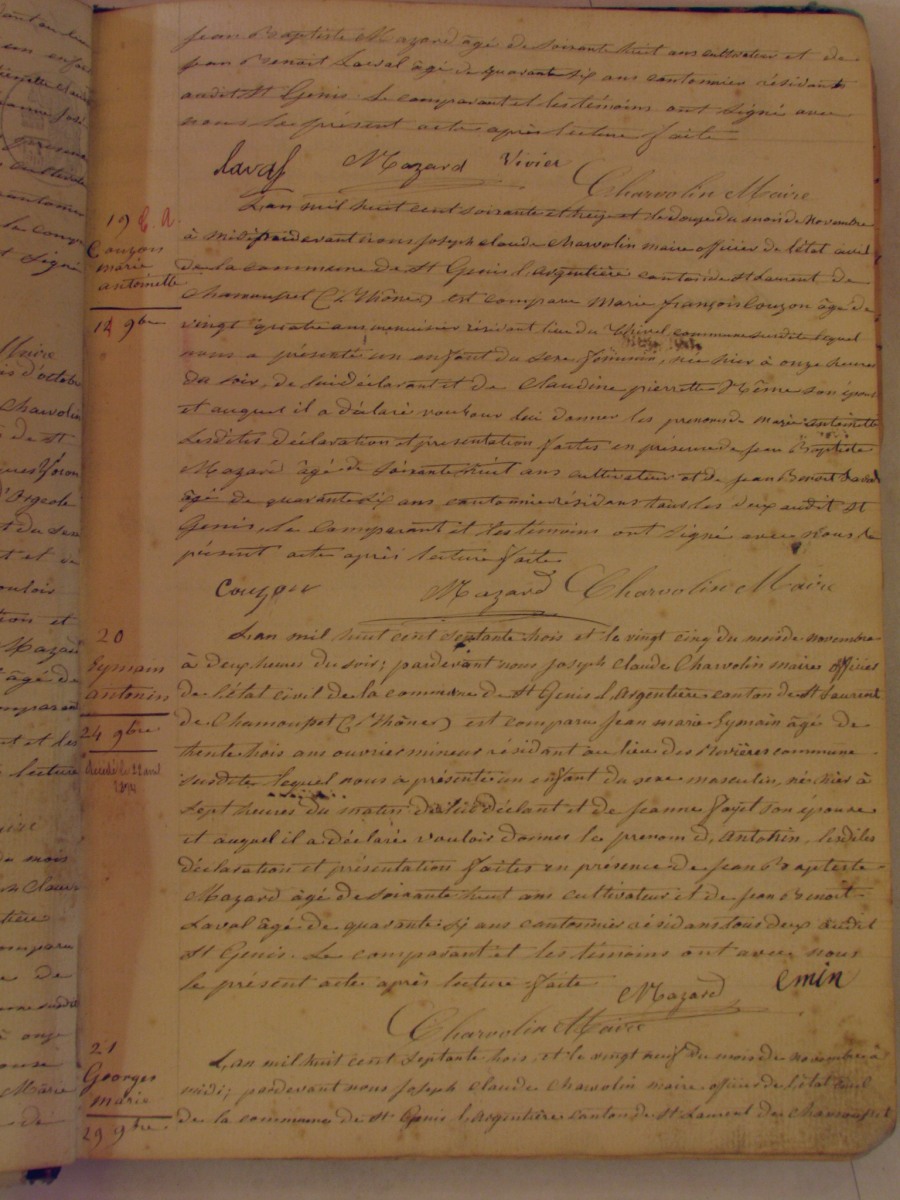 jean Baptiste Mazard âgé de soixante huit ans cultivateur et de
jean Benoit Laval âgé de quarante six ans cantonnier résidants
audit St Genis. Le comparant et les témoins ont signé avec
nous le présent acte après lecture faite
Laval Mazard Vivier
Charvolin Maire
19 C. A.
Couzon
marie
antoinette
14 9bre
L'an mil huit cent soixante et treize et le douze du mois de novembre
à midi pardevant nous joseph claude Charvolin maire officier de l'état civil
de la commune de St Genis l'Argentière canton de St Laurent de
Chamousset (Rhône) est comparu Marie françois Couzon âgé de
vingt quatre ans menuisier résidant lieu du commune susdite lequel
nous a présenté un enfant du sexe féminin, née hier à onze heures
du soir, de lui déclarant et de Claudine pierrette son épouse
et auquel il a déclaré vouloir lui donner les prenoms de marie antoinette
Lesdites déclaration et presentation faites en présence de jean Baptiste
Mazard âgé de soixante huit ans cultivateur et de jean Benoit Laval
âgé de quarante six ans cantonnier résidans tous les deux audit St
Genis, Le comparant et les témoins ont signé avec nous le
présent acte après lecture faite
Couzon Mazard Charvolin Maire
20
Eymain
antonin
24 9bre
Décédé le 22 avril
1894
L'an mil huit cent septante trois et le vingt cinq du mois de novembre
à deux heures du soir; pardevant nous joseph Claude Charvolin maire officier
de l'état civil de la commune de St Genis l'Argentière canton de St Laurent
de Chamousset (Rhône) est comparu jean marie Eymain âgé de
trente trois ans ouvrier mineur résidant au lieu des Rivières commune
susdite lequel nous a présenté un enfant du sexe masculin, né hier à
sept heures du matin de lui déclant et de jeanne son épouse
et auquel il a déclaré vouloir donner le prenom d'Antonin, lesdites
déclaration et présentation faites en présence de jean Baptiste
Mazard âgé de soixante huit ans cultivateur et de jean Benoit
Laval âgé de quarante six ans cantonnier résidans tous deux audit
St Genis. Le comparant et les témoins ont avec nous
le présent acte après lecture faite
Mazard emin
Charvolin Maire
21
Georges
marie
29 9bre
L'an mil huit cent septante trois et le vingt neuf du mois de novembre à
midi; pardevant nous joseph Claude Charvolin maire officier de l'état civil
de la commune de St Genis l'Argentière canton de St Laurent de Chamousset